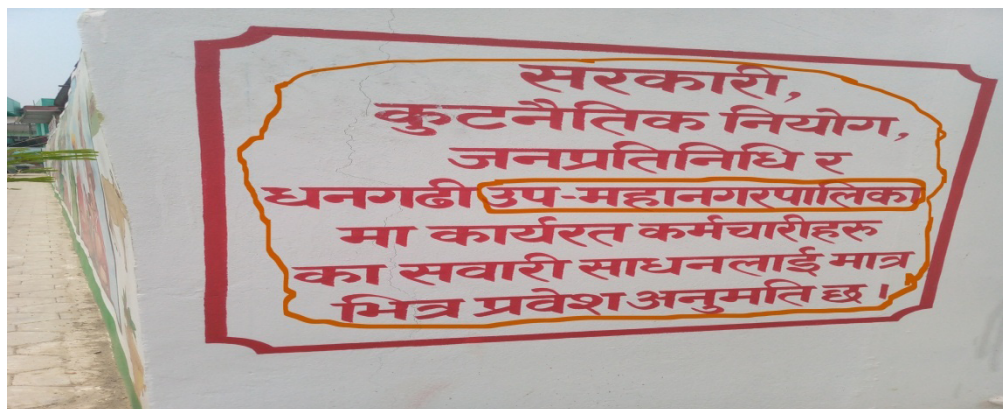 सरकारी,
कुटनैतिक नियोग,
जनप्रतिनिधि र
धनगढी उप-महानगरपालिका
मा कार्यरत कर्मचारीहरु
का सवारी साधनलाई मात्र
भित्र प्रवेश अनुमति छ।